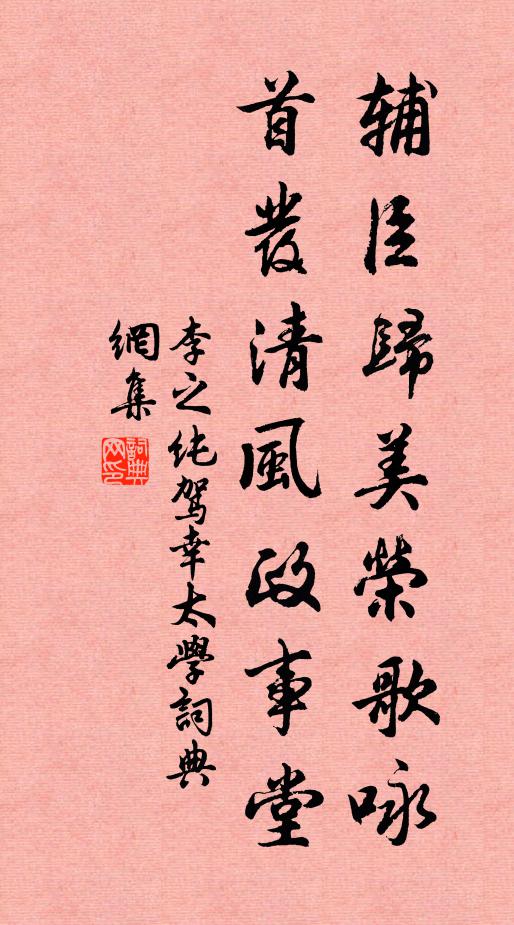 輔臣歸美榮歌咏
首發清風政事堂
李之純駕幸太學詞典
網集
詞典網印